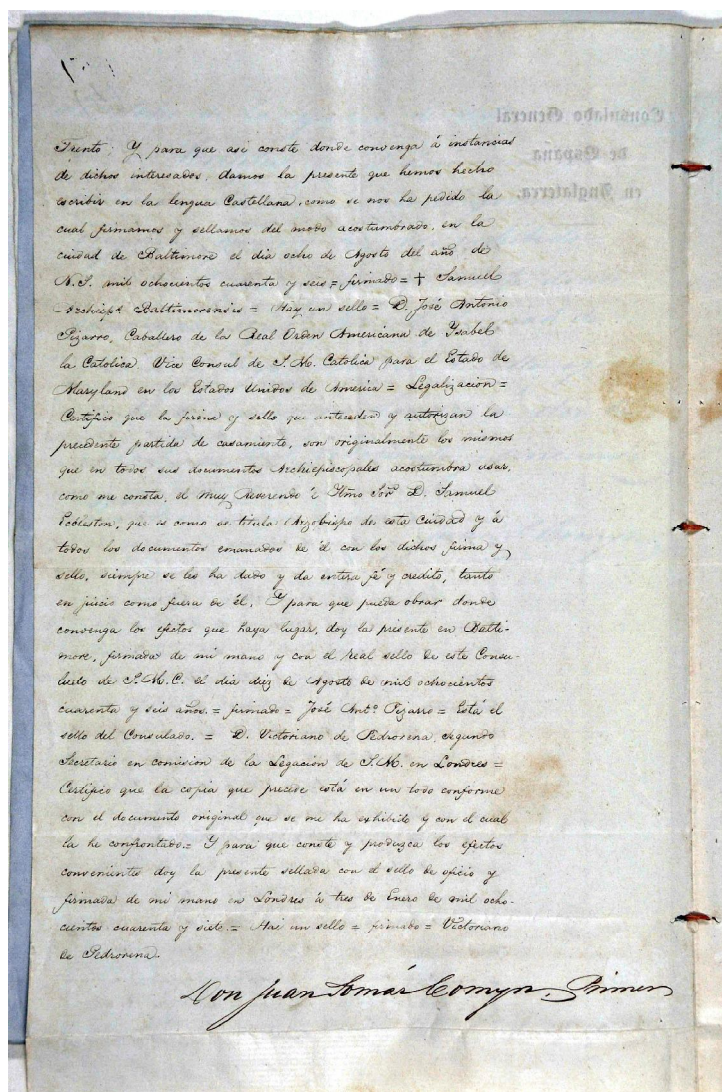 Consulado General
de España
en Inglaterra.
Trento: Y para que asi conste donde convenga á instancias
de dichos interesados, damos la presente que hemos hecho
escribir en la lengua Castellana, como se nos ha pedido la
cual firmamos y sellamos del modo acostumbrado, en la
cuidad de Baltimore el dia ocho de Agosto del año de
N.S. mil ochocientos cuarenta y seis = firmado = † Samuel
Archiepẽ Baltimorensis = Hay un sello = D. José Antonio
Pizarro, Caballero de la Real Orden Americana de Ysabel
la Catolica, Vice Consul de S. M. Catolica para el Estado de
Maryland en los Estados Unidos de America = Legalizacion =
Certifico que la firma y sello que anteceden y autorizan la
precedente partida de casamiento, son originalmente los mismos
que en todos sus documentos Archiepiscopales acostumbra usar,
como me consta, el Muy Reverendo é Yltmo Sor. D. Samuel
Eccleston, que es como se titula Arzobispo de esta Cuidad y á
todos los documentos emanados de él con los dichos firma y
sello, siempre se les ha dado y da entera fé y credito, tanto
en juicio como fuera de él. Y para que pueda obrar donde
convenga los efectos que haya lugar, doy la presente en Balti-
more, firmada de mi mano y con el real sello de este Consu-
lado de S.M.C. el dia diez de Agosto de mil ochocientos
cuarenta y seis años. = firmado = José Antº Pizarro = Está el
sello del Consulado. = D. Victoriano de Pedrorena, segundo
Secretario en comision de la Legacion de S.M. en Londres =
Certifico que la copia que precede está en un todo conforme
con el documento original que se me ha exhibido y con el cual
la he confrontado. = Y para que conste y produzca los efectos
convenientes doy la presente sellada con el sello de oficio y
firmada de mi mano en Londres á tres de Enero de mil ocho-
cientos cuarenta y siete. = Hai un sello = firmado = Victoriano
de Pedrorena.
Don Juan Tomás Comyn, Primer